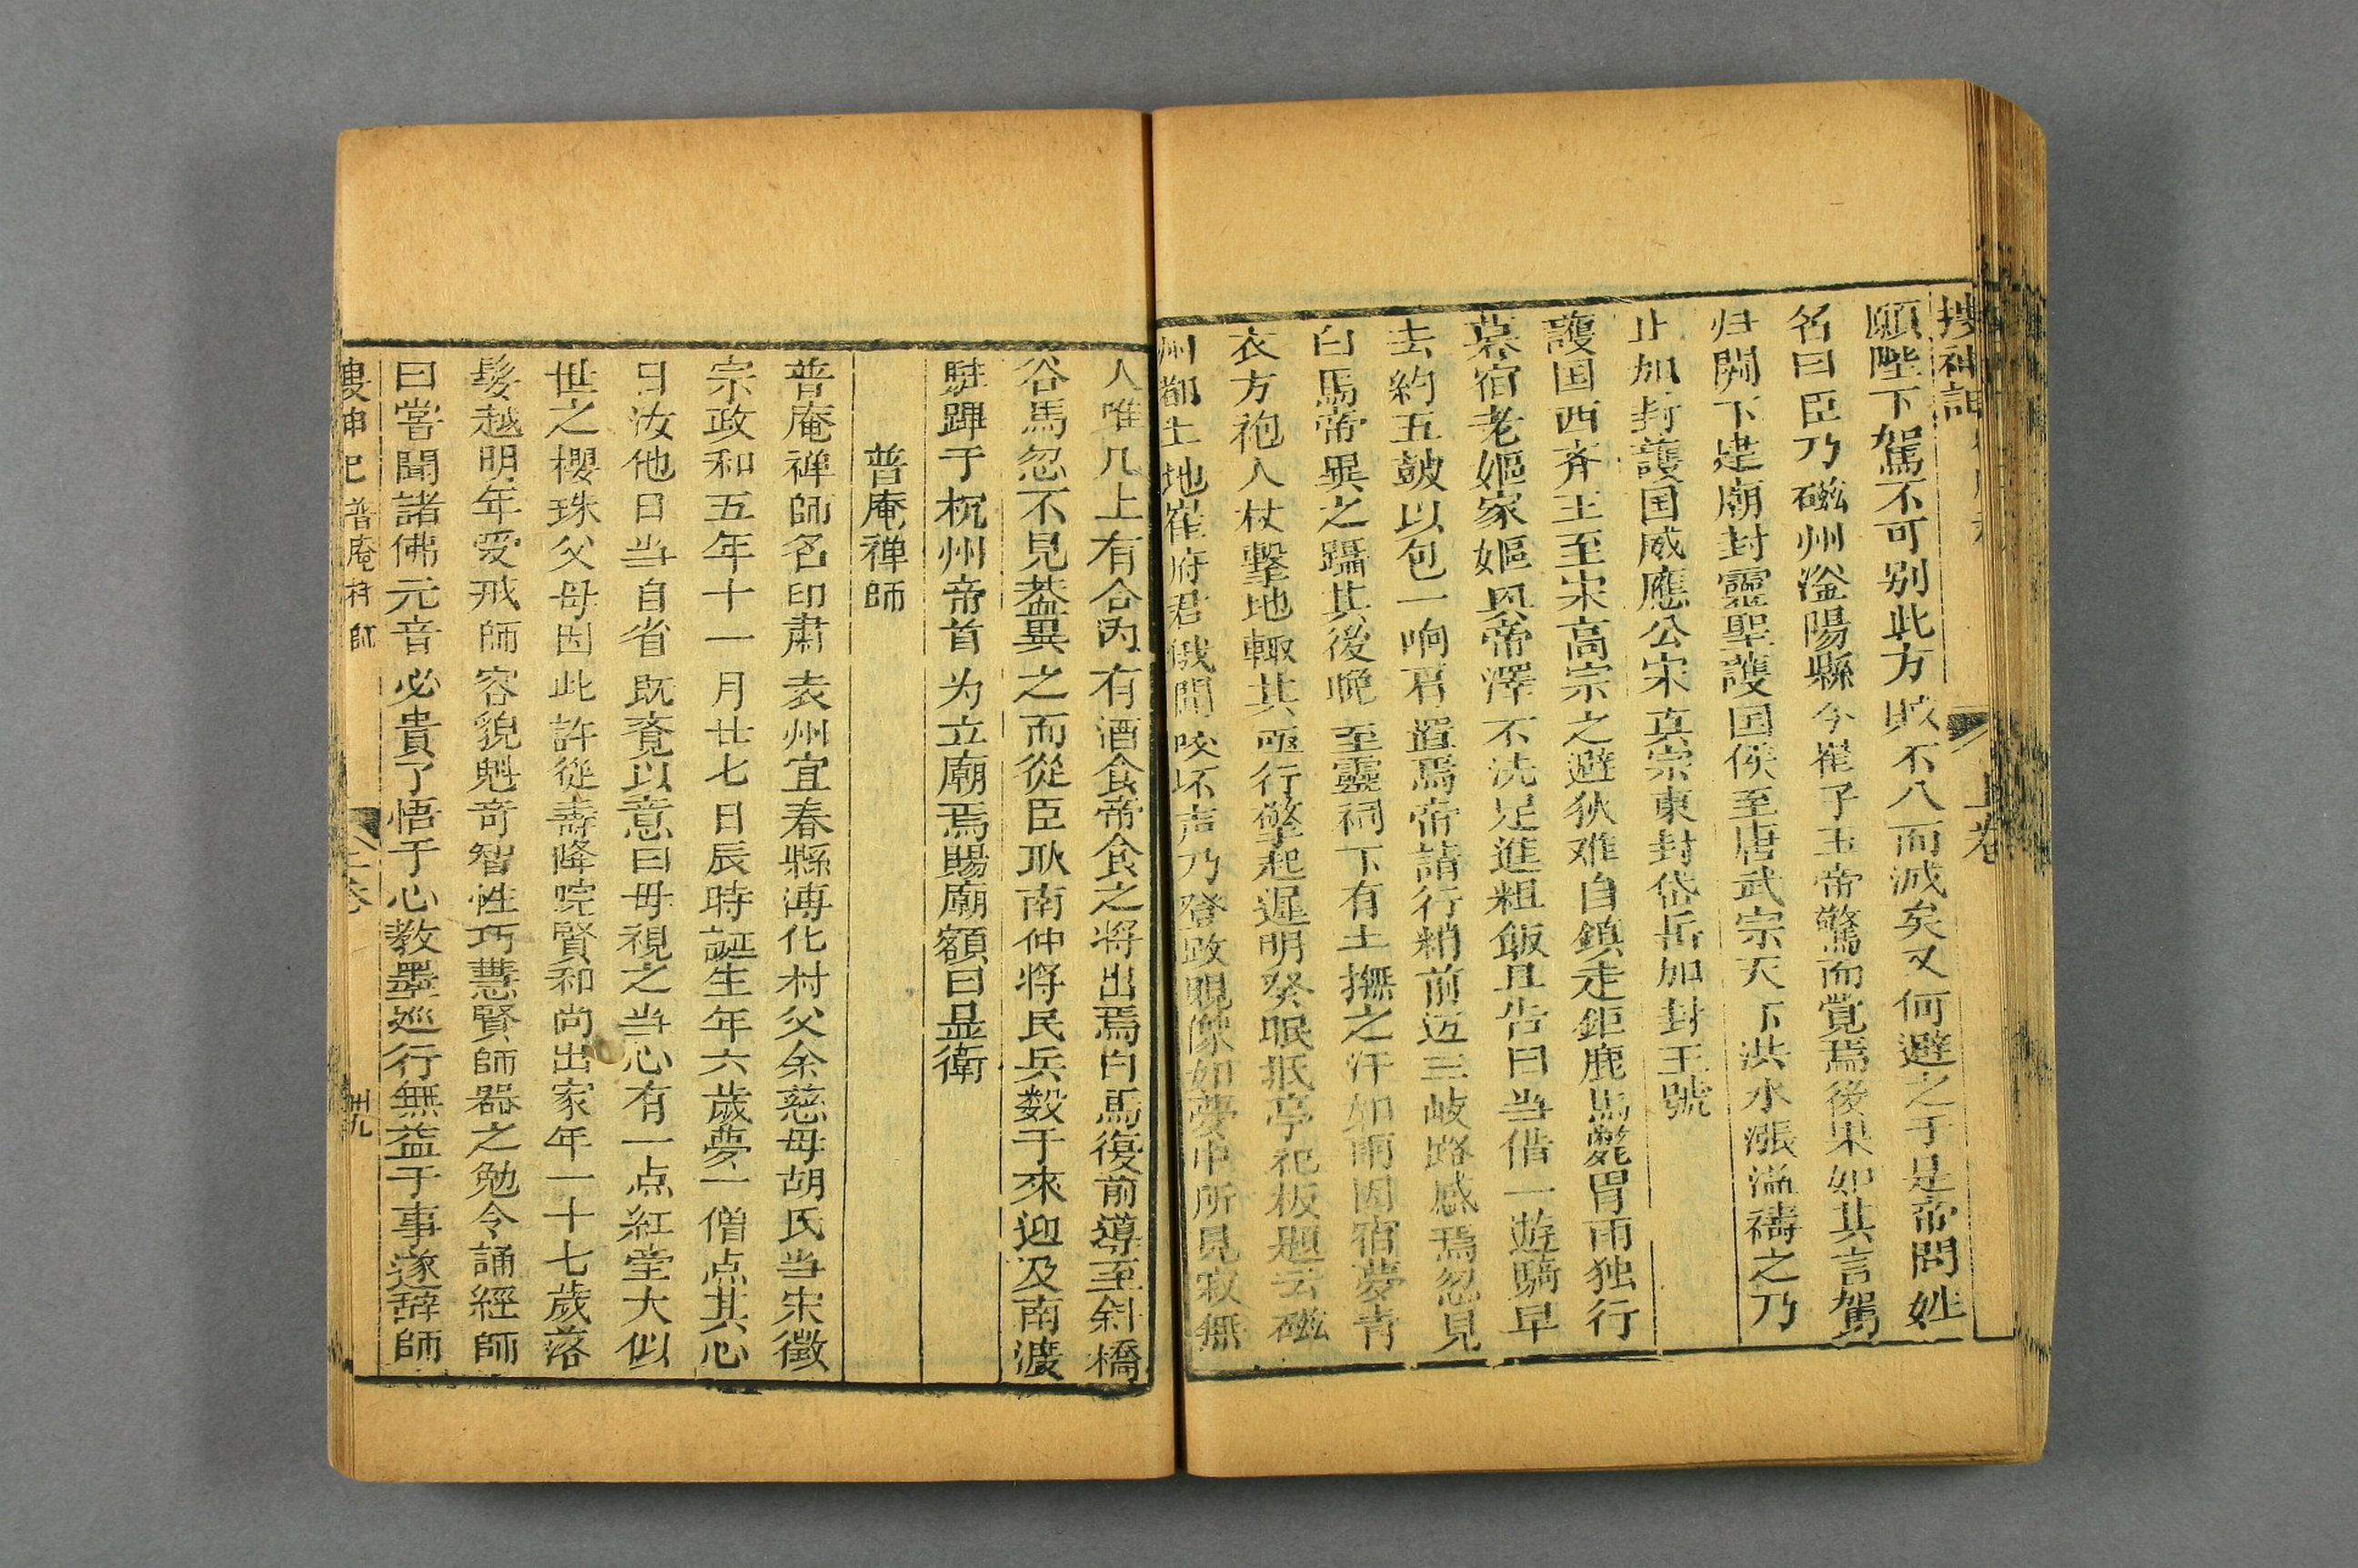 搜神記
上卷
願陛下駕不可别此方賊不八而滅矣又何避之于是帝問姓
名曰臣乃磁州滏陽縣令崔子玉帝驚而覺焉後果如其言駕
归闕下建廟封靈聖護国侯至唐武宗天下洪水漲溢禱之乃
止加封護国威應公宋真宗東封岱岳加封王號
護国西斉王至宋高宗之避狄难自鎮走鉅鹿馬斃冒雨独行
暮宿老嫗家嫗具帝澤不洗足進粗飯且告曰当借一遊騎早
去約五皷以包一响君置焉帝請行稍前近三岐路感焉忽見
白馬帝異之躡其後晚至靈祠下有土撫之汗如雨因宿夢青
衣方袍人杖擊地輙其亟行驚起遲明癸眠抵亭祀板題云磁
州都土地崔府君俄聞咬坏声乃登政覘像如夢中所見寂無
人唯几上有合内有酒食帝食之将出焉白馬復前導至斜橋
谷馬忽不見葢異之而從臣耿南仲将民兵数于來迎及南渡
駐蹕于杭州帝首为立廟焉賜廟額曰显衛
普庵禅師
普庵禅師名印肅袁州宜春縣漙化村父余慈母胡氏当宋徽
宗政和五年十一月廿七日辰時誕生年六歲夢一僧点其心
曰汝他日当自省既寤以意曰毋視之当心有一点紅瑩大似
世之櫻珠父母因此許從壽降院賢和尚出家年一十七歲落
髪越明年受戒師容貌魁竒智性巧慧賢師器之勉令誦經師
曰嘗聞諸佛元音必貴了悟于心教墨巡行無益于事遂辞師
搜神記 普庵禅師
上卷
卅九